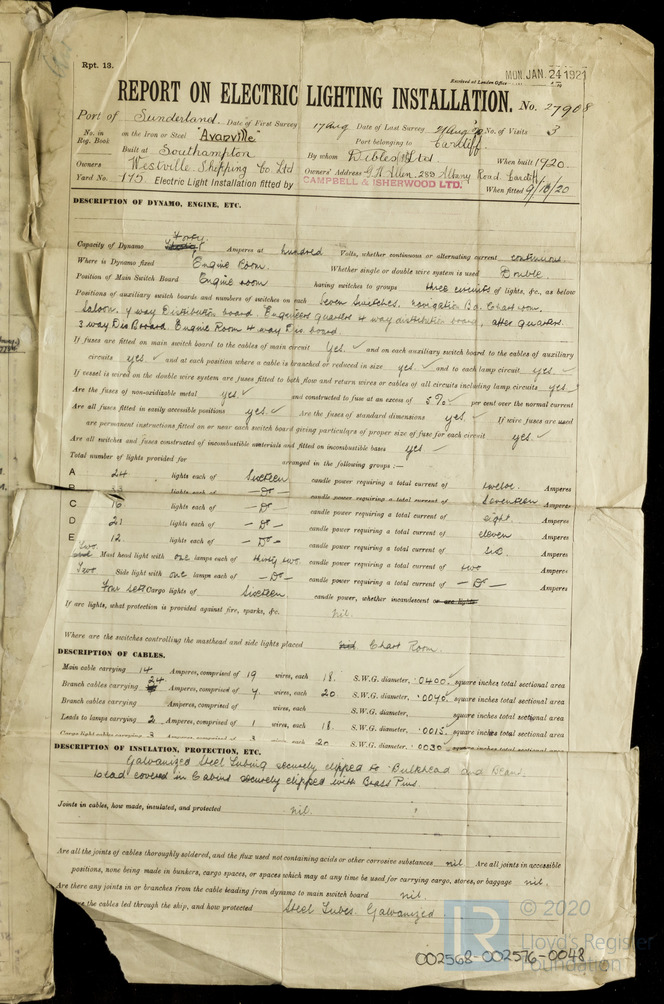 Rpt. 13.
Received at London Office MON. JAN. 24 1921
REPORT ON ELECTRIC LIGHTING INSTALLATION. No. 27908
Port of Sunderland Date of First Survey 17 Aug Date of Last Survey No. of Visits 3
No. in Reg. Book on the Iron or Steel Port belonging to Cardiff
Built at Southampton By whom When built 1920.
Owners Westville Shipping Co Ltd Owners' Address Albany Road. Cardiff
Yard No. 175 Electric Light Installation fitted by CAMPBELL & ISHERWOOD LTD. When fitted 9/10/20
DESCRIPTION OF DYNAMO, ENGINE, ETC.
Capacity of Dynamo Amperes at hundred Volts, whether continuous or alternating current continuous.
Where is Dynamo fixed Engine Room. Whether single or double wire system is used Double.
Position of Main Switch Board Engine room having switches to groups three circuits of lights, &c., as below
Positions of auxiliary switch boards and numbers of switches on each Seven Switches. navigation Bd. Chart room.
Saloon. 4 way Distribution board. Engineers quarters 4 way distribution board, after quarters.
3 way Dis Board. Engine Room 4 way Dis. board.
If fuses are fitted on main switch board to the cables of main circuit yes. ✓ and on each auxiliary switch board to the cables of auxiliary
circuits yes. ✓ and at each position where a cable is branched or reduced in size yes. ✓ and to each lamp circuit yes. ✓
If vessel is wired on the double wire system are fuses fitted to both flow and return wires or cables of all circuits including lamp circuits yes.
Are the fuses of non-oxidizable metal yes. ✓ and constructed to fuse at an excess of 5 % ✓ per cent over the normal current
Are all fuses fitted in easily accessible positions yes. ✓ Are the fuses of standard dimensions yes ✓ If wire fuses are used
are permanent instructions fitted on or near each switch board giving particulars of proper size of fuse for each circuit yes. ✓
Are all switches and fuses constructed of incombustible materials and fitted on incombustible bases yes ✓
Total number of lights provided for arranged in the following groups :—
A 24 lights each of Sixteen candle power requiring a total current of twelve. Amperes
B lights each of - Do - candle power requiring a total current of Seventeen Amperes
C 16 lights each of - Do candle power requiring a total current of eight. Amperes
D 21 lights each of - Do - candle power requiring a total current of eleven Amperes
E 12 lights each of - Do - candle power requiring a total current of six. Amperes
Two Mast head light with one lamps each of thirty two. candle power requiring a total current of two Amperes
Two Side light with one lamps each of - Do - candle power requiring a total current of - Do - Amperes
Four sets Cargo lights of Sixteen candle power, whether incandescent or arc lights
If arc lights, what protection is provided against fire, sparks, &c. nil.
Where are the switches controlling the masthead and side lights placed Chart Room.
DESCRIPTION OF CABLES.
Main cable carrying 14 Amperes, comprised of 19 wires, each 18. S.W.G. diameter, .0400 square inches total sectional area
Branch cables carrying 24 Amperes, comprised of 7 wires, each 20 S.W.G. diameter, .0040 square inches total sectional area
Branch cables carrying Amperes, comprised of wires, each S.W.G. diameter, square inches total sectional area
Leads to lamps carrying 2 Amperes, comprised of 1 wires, each 18. S.W.G. diameter, .0015 square inches total sectional area
Cargo light cables carrying 3 Amperes, comprised of 3 wires, each 20 S.W.G. diameter, .0030 square inches total sectional area
DESCRIPTION OF INSULATION, PROTECTION, ETC.
Galvanized Steel Tubing securely clipped to Bulkhead and Beams.
Lead covered in Cabins securely clipped with Brass Pins.
Joints in cables, how made, insulated, and protected nil.
Are all the joints of cables thoroughly soldered, and the flux used not containing acids or other corrosive substances nil Are all joints in accessible
positions, none being made in bunkers, cargo spaces, or spaces which may at any time be used for carrying cargo, stores, or baggage nil.
Are there any joints in or branches from the cable leading from dynamo to main switch board nil.
are the cables led through the ship, and how protected Steel Tubes. Galvanized
LR © 2020
Lloyd's Register
Foundation
002568-002576-0048